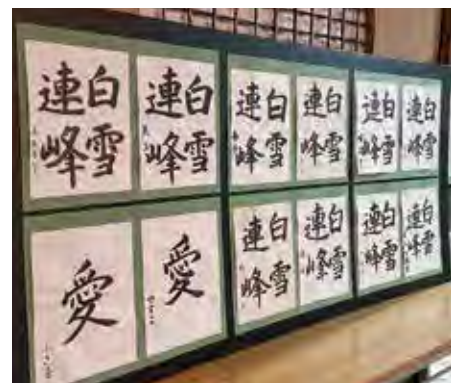 白雪
連峰
白雪
連峰
白雪
連峰
白雪
連峰
白雪
連峰
白雪
連峰
愛
愛
白雪
連峰
白雪
連峰
白雪
連峰
白雪
連峰